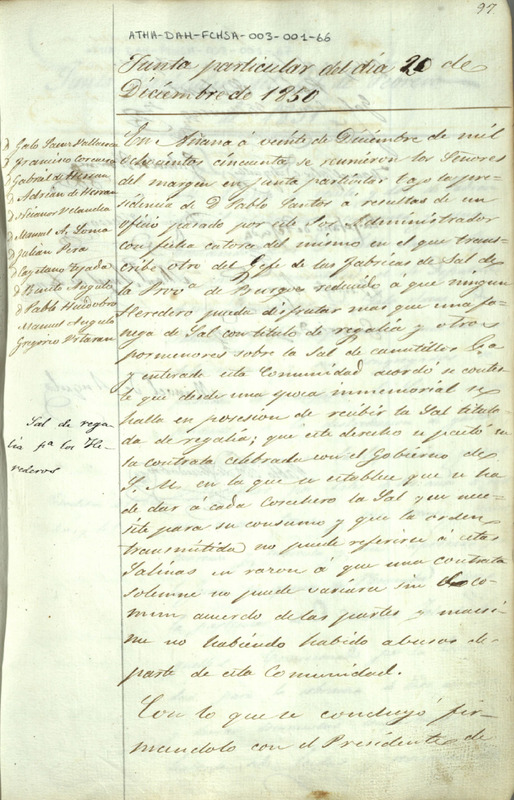 97.
ATHA-DAH-FCHSA-003-001-66
Junta particular del dia 20 de
Diciembre de 1850
D Galo Saenz Villanueva
D Francisco Corcuera
D Gabriel de Herran
D Adrian de Herran
D Nicanor Velandia
D Manuel A. Loma
D Julian Pera
D Cayetano Tejada
D Benito Angulo
D Pablo Huidobro
Manuel Angulo
Gregorio Urtaran
Sal de rega-
lia pa. los He-
rederos
En Añana á veinte de Diciembre de mil
ochocientos cincuenta se reunieron los Señores
del margen en junta particular bajo la pre-
sidencia de D Pablo Santos á resultas de un
oficio pasado por el Sor. Administrador
con fecha catorce del mismo en el que trans-
cribe otro del Gefe de las fabricas de Sal de
la Prova. de Burgos reducido a que ningun
Heredero pueda disfrutar mas que una fa-
nega de Sal con titulo de regalia y otros
pormenores sobre la Sal de canutillos
y enterada esta Comunidad acordó se contes-
te que desde una epoca inmemorial se
halla en posesion de recibir la Sal titula-
da de regalia; que este derecho se pactó en
la contrata celebrada con el Gobierno de
S. M. en la que se establece que se ha
de dar á cada Cosechero la Sal que nece-
site para su consumo y que la orden
transmitida no puede referirse á estas
Salinas en razon á que una contrata
solemne no puede variarse sin co-
mun acuerdo de las partes y maxi-
me no habiendo habido abusos de
parte de esta Comunidad.
Con lo que se concluyó fir-
mandolo con el Presidente de